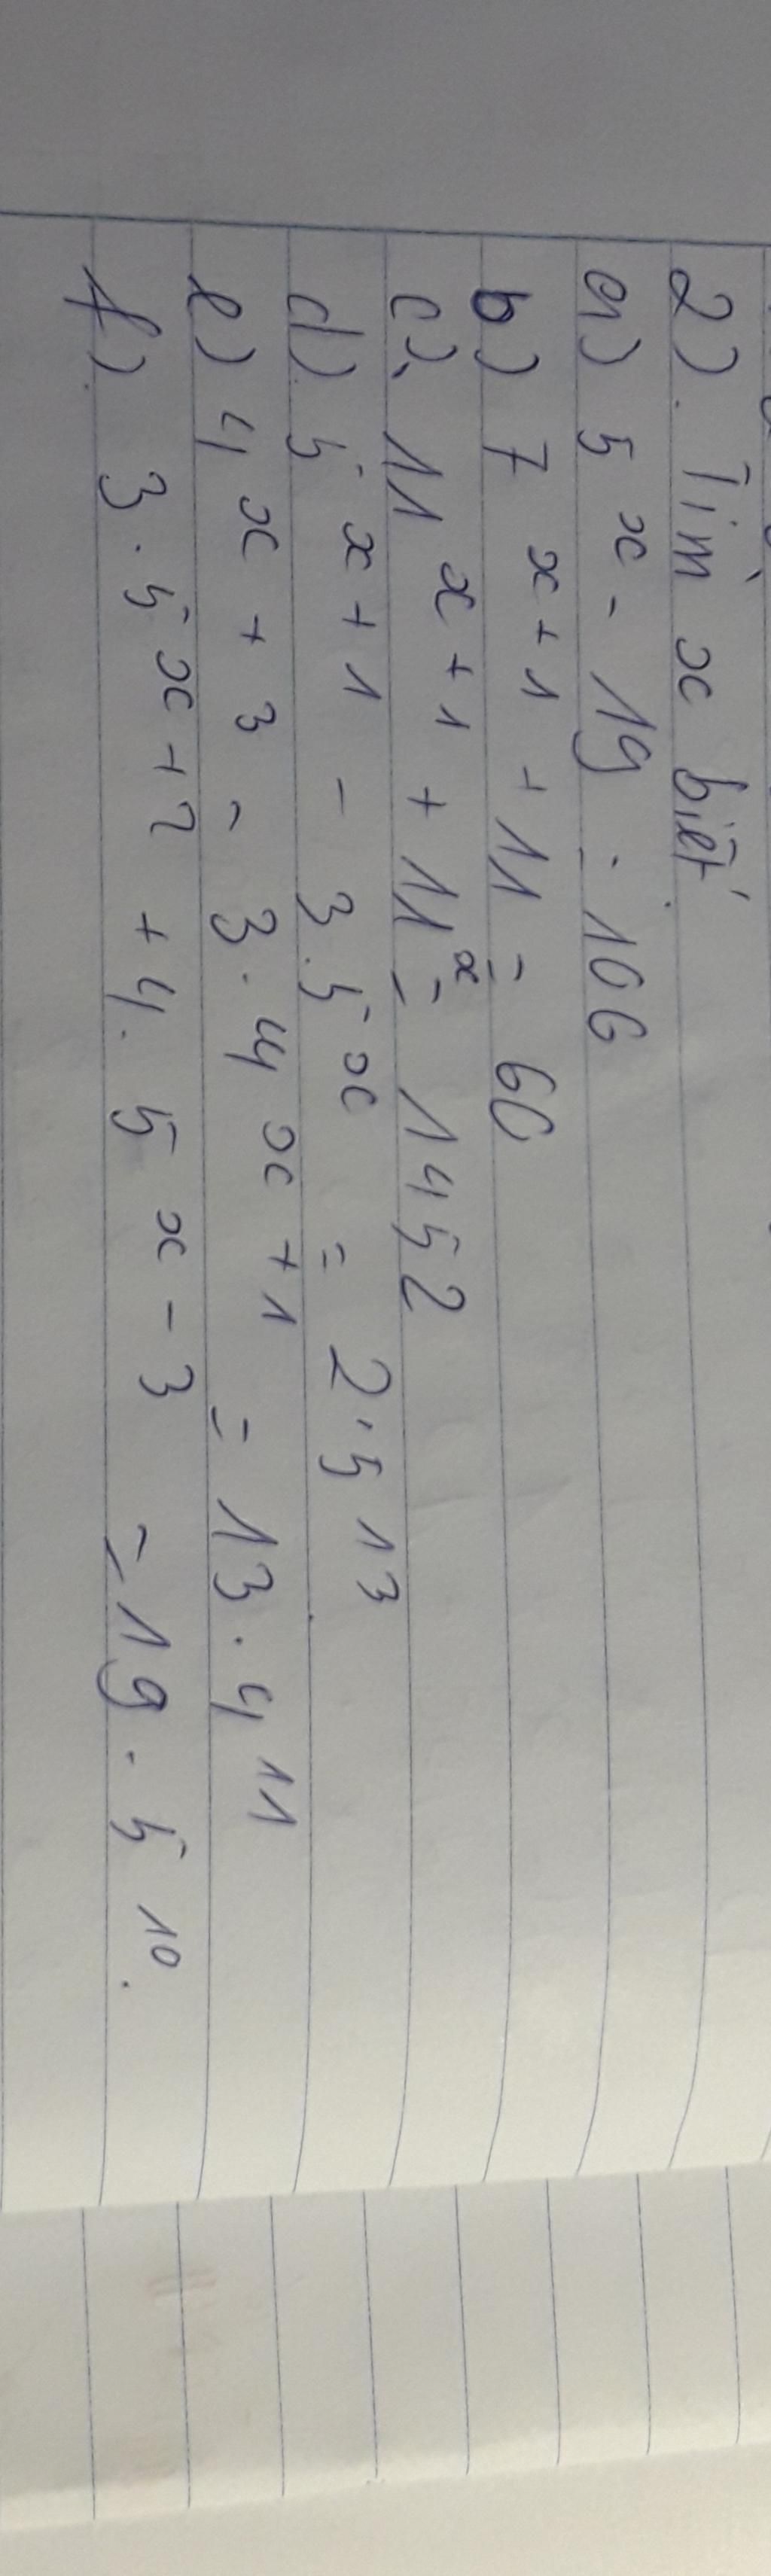 2). Tìm x biết
a) 5^x - 19 = 106
b) 7^x+1 + 11 = 60
c). 11^x+1 + 11^x = 1452
d) 5^x+1 - 3.5^x = 2.5^13
e) 4^x+3 - 3.4^x+1 = 13.4^11
f). 3.5^x+2 + 4.5^x-3 = 19.5^10.